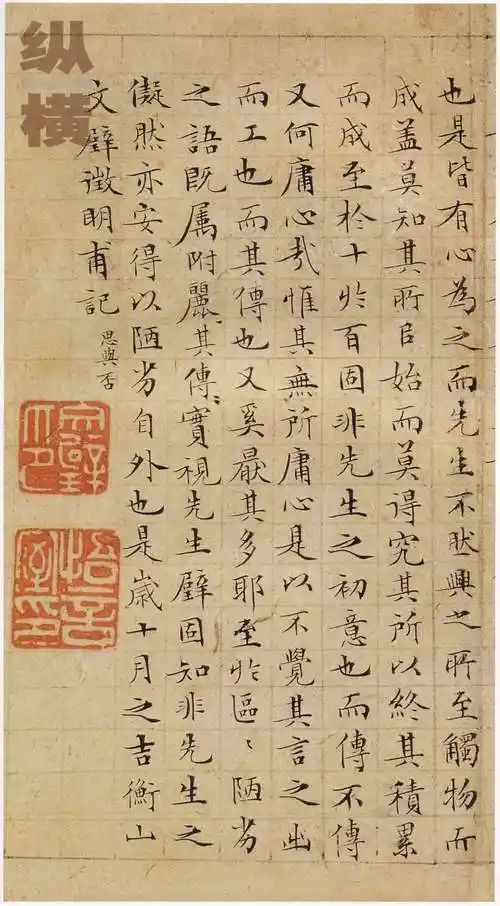 也是皆有心為之而先生不肰興之所至觸物而
成盖莫知其所自始而莫得究其所以終其積累
而成至於十於百固非先生之初意也而傳不傳
又何庸心哉惟其無所庸心是以不覺其言之出
而工也而其傳也又奚厭其多耶至於區〻陋劣
之語既属附麗其傳〻實視先生壁固知非先生之
儗然亦安得以陋劣自外也是歲十月之吉衡山
文壁徵明甫記
思與否
文壁印
悟言室印
纵横